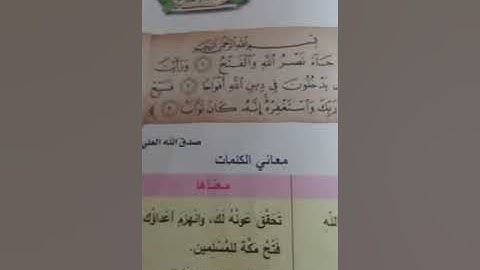 بِسْمِ اللَّهِ الرَّحْمَٰنِ الرَّحِيمِ
جَاءَ نَصْرُ اللَّهِ وَالْفَتْحُ ١ وَرَأَيْتَ
يَدْخُلُونَ فِي دِينِ اللَّهِ أَفْوَاجًا ٢ فَسَبِّحْ
رَبِّكَ وَاسْتَغْفِرْهُ إِنَّهُ كَانَ تَوَّابًا ٣
صدق الله العلي
معاني الكلمات
معناها
تَحَقَّقَ عَوْنُهُ لَكَ، وَانْهَزَمَ أَعْدَاؤُكَ
الله
فَتْحُ مَكَّةَ لِلْمُسْلِمِينَ.